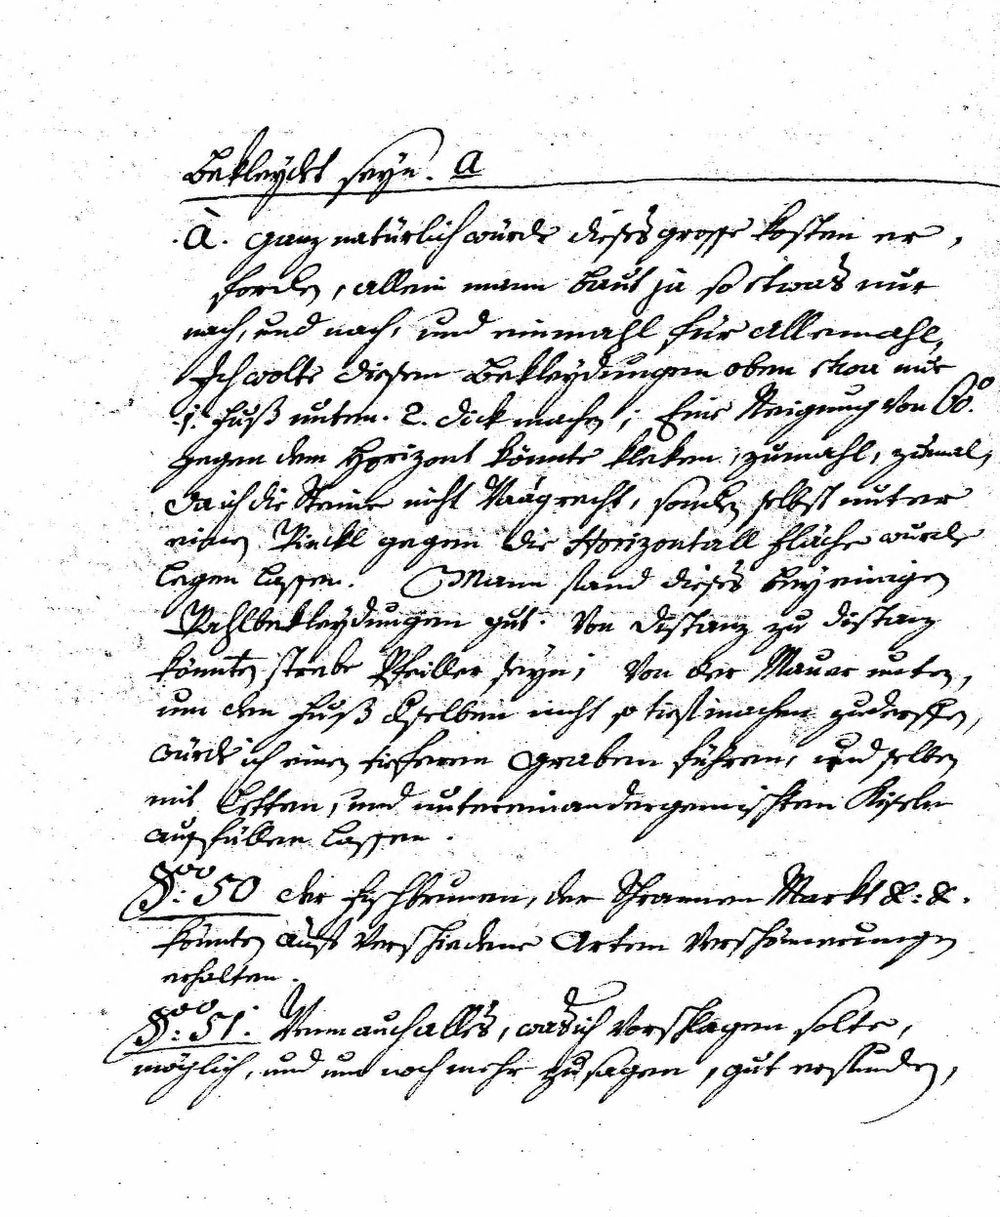 Bekleydet seyn. a
.a. ganz natürlich würde dieses grosse kosten er,
fordern, allein mann baut ja so etwas nur
nach, und nach, und einmahl für allemahl,
Ich wolte diesen Bekleydungen oben etwa nur
.1. Fuß unten. 2. dick machen; Eine Neigung von 60°.
gegen dem Horizont könnte kleken, zumahl, zumal,
da ich die Steine nicht Waagrecht, sondern selbst unter
einen Winckl gegen die Horizontall fläche würde
legen lassen. Mann fand dieses bey einigen
Wahlbekleydungen gut. Von distanz zu distanz
könnten strebe Pfeiller seyn; Von der Mauer unten,
um den Fuß derselben nicht so tief machen zuderffen,
würde ich einen tieferen graben führen, und selben
mit Letten, und untereinandergemischten Kiseln
ausfüllen lassen.
§: 50 der Fischbrunen, der Schrannen Markt &: &.
könnten auf Verschiedene Arten Verschönnerungen
erhalten.
§: 51. Wenn auch alles, was ich Vorschlagen solte,
möglich, und um noch mehr zusagen, gut erfunden,